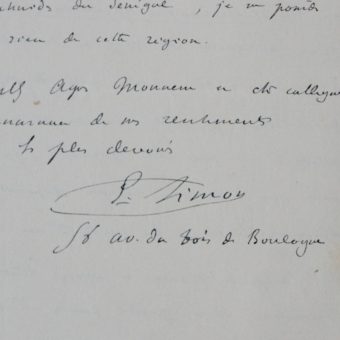 du Sénégal, je ne possède
rien de cette région.
Monsieur et cher collègue
de mes sentiments
les plus dévoués
E. Simon
56 av. du Bois de Boulogne